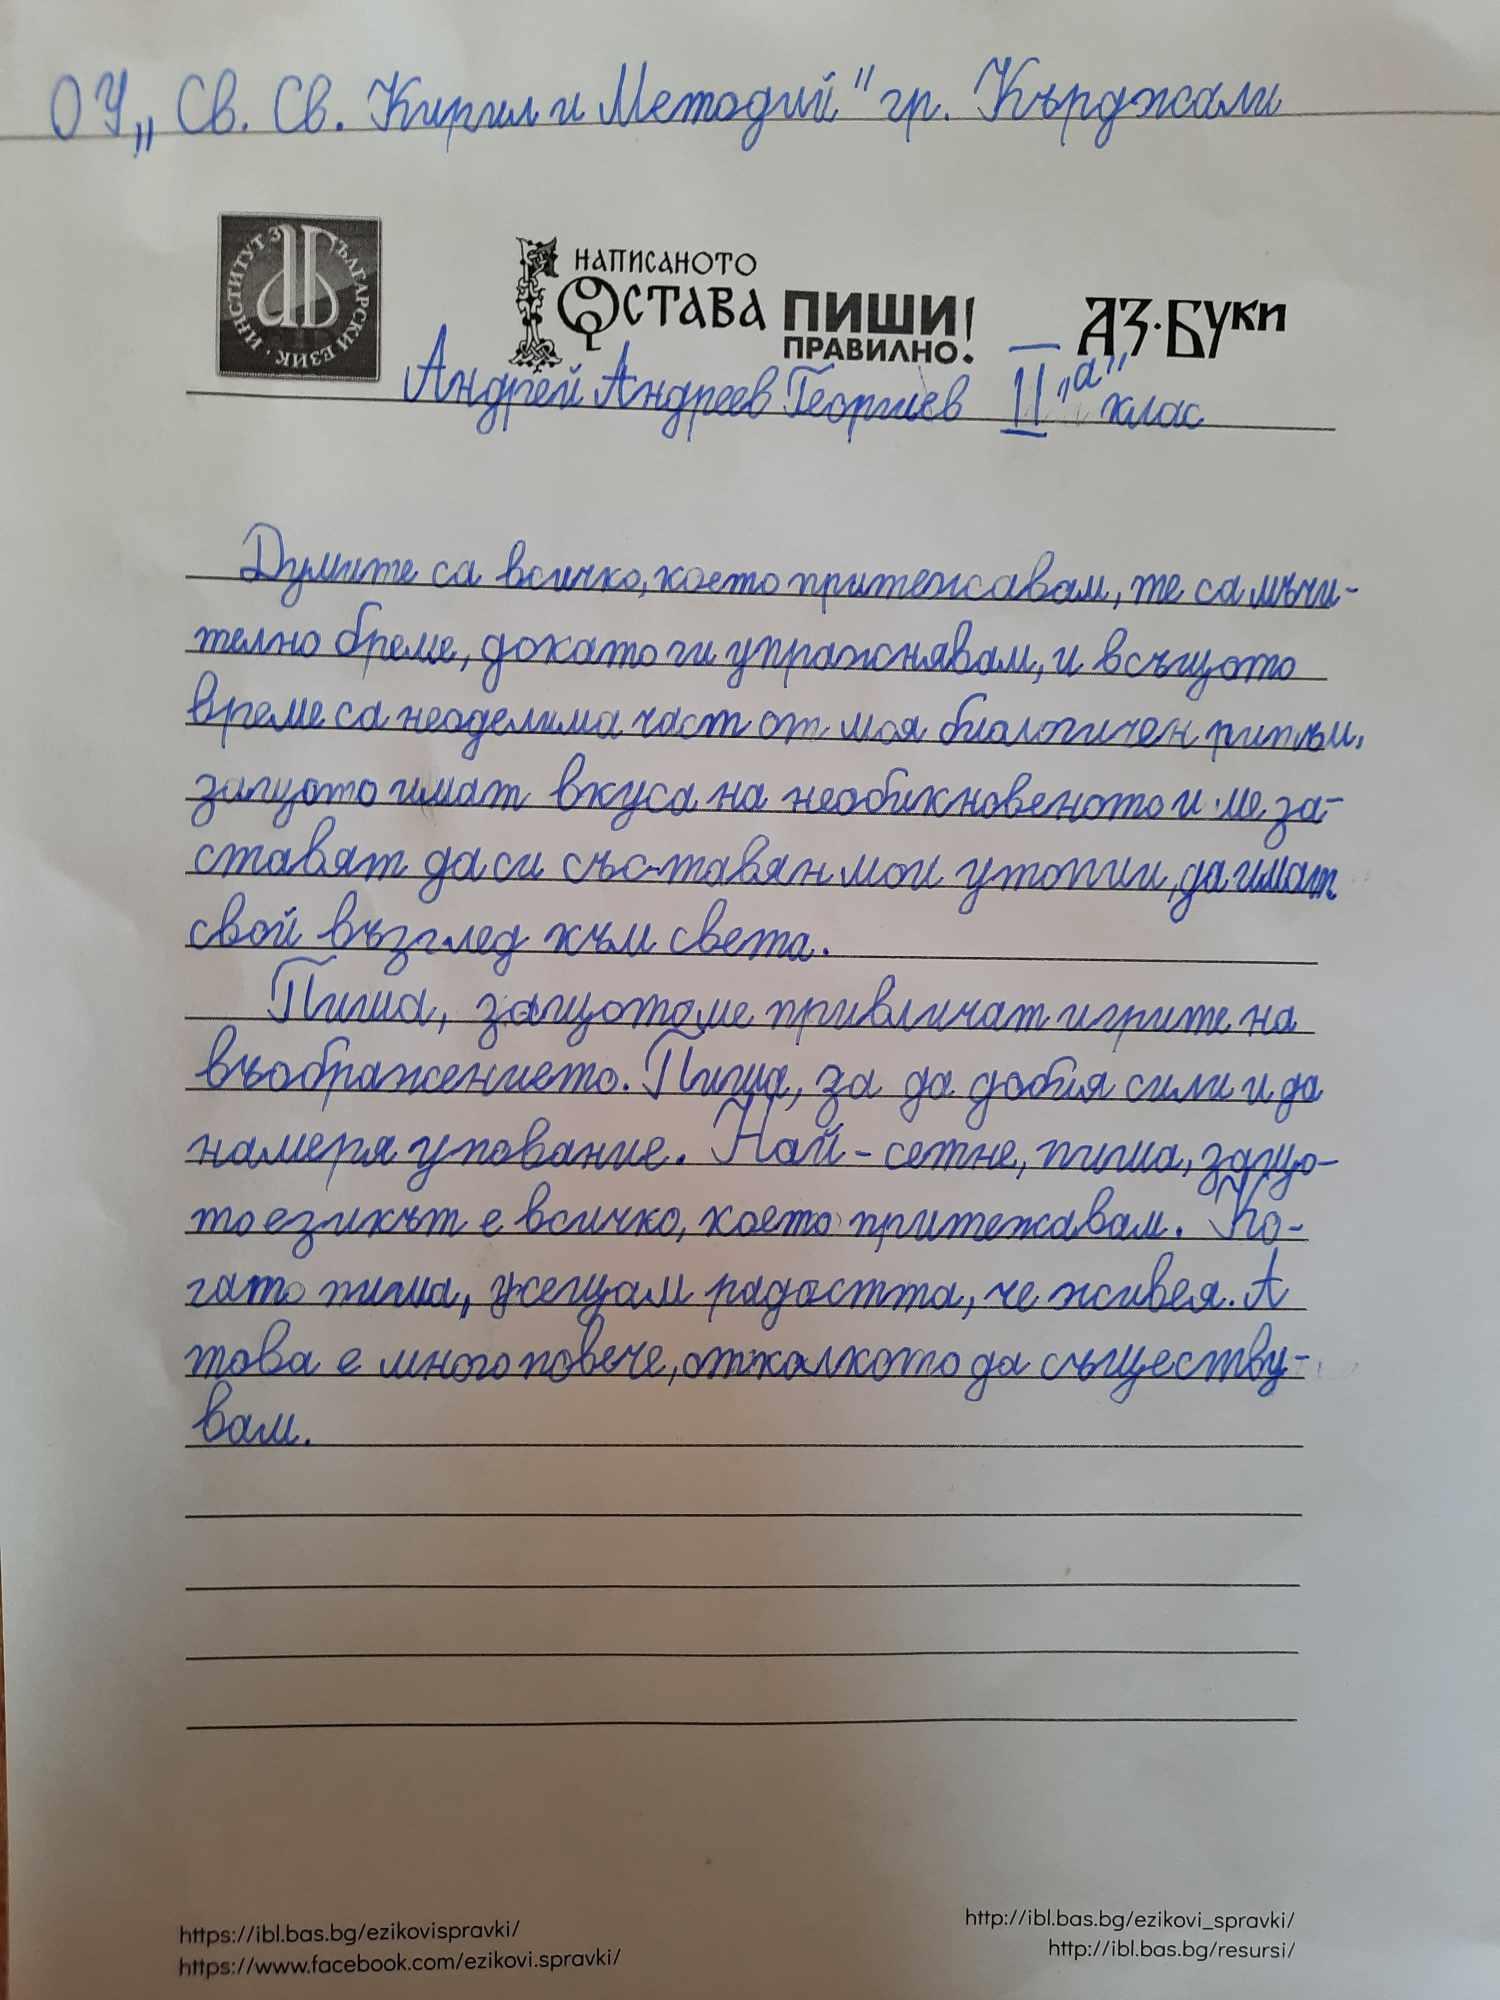 ОУ „Св. Св. Кирил и Методий" гр. Кърджали
ИНСТИТУТ ЗА БЪЛГАРСКИ ЕЗИК
НАПИСАНОТО
ОСТАВА ПИШИ
ПРАВИЛНО!
АЗ·БУКИ
Андрей Андреев Георгиев II „а" клас
Думите са всичко, което притежавам, те са мъчи-
телно бреме, докато ги упражнявам, и в същото
време са неоделима част от моя биологичен ритъм,
защото имат вкуса на необикновеното и ме за-
ставят да си съставян мои утопии, да имат
свой възглед към света.
Пиша, защото ме привличат игрите на
въображението. Пиша, за да добия сили и да
намеря упование. Най-сетне, пиша, защо-
то езикът е всичко, което притежавам. Ко-
гато пиша, усещам радостта, че живея. А
това е много повече, отколкото да съществу-
вам.
https://ibl.bas.bg/ezikovispravki/
https://www.facebook.com/ezikovi.spravki/
http://ibl.bas.bg/ezikovi_spravki/
http://ibl.bas.bg/resursi/